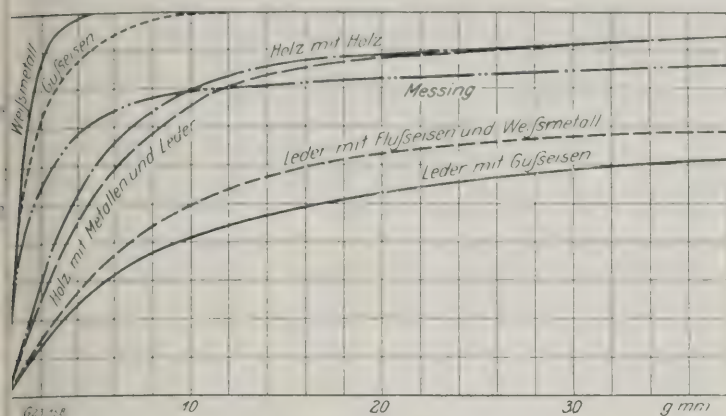 Weißmetall
Gußeisen
Holz mit Holz
Messing
Holz mit Metallen und Leder
Leder mit Flußeisen und Weißmetall
Leder mit Gußeisen
10
20
30
g mm